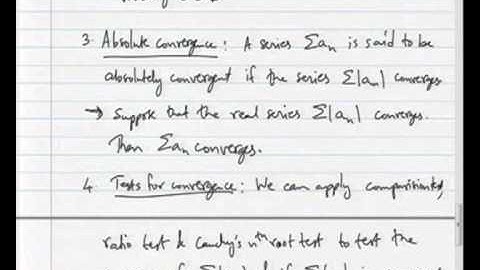 3. Absolute convergence : A series Σan is said to be
absolutely convergent if the series Σ|an| converges
→ Suppose that the real series Σ|an| converges.
Then Σan converges.
4. Tests for convergence : We can apply
ratio test & Cauchy's nth root test to test the